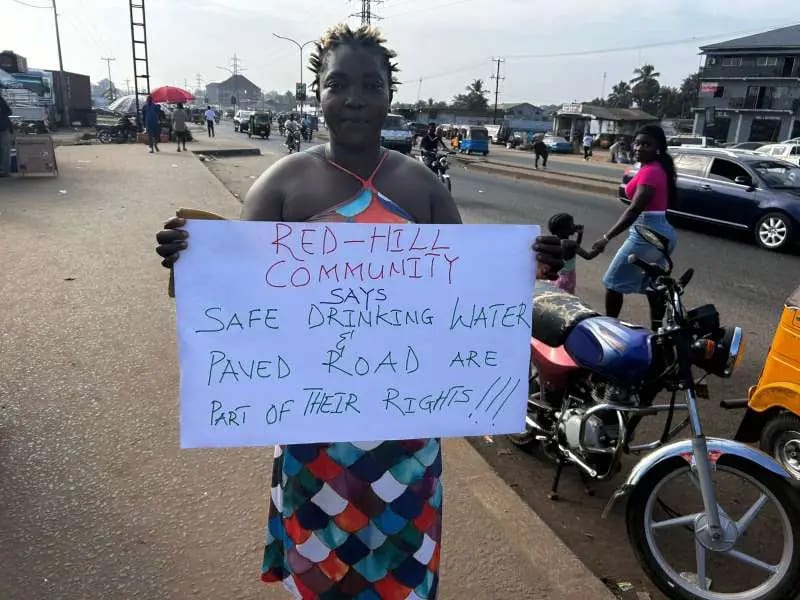 RED-HILL
COMMUNITY
SAYS
SAFE DRINKING WATER
&
PAVED ROAD ARE
PART OF THEIR RIGHTS!!!